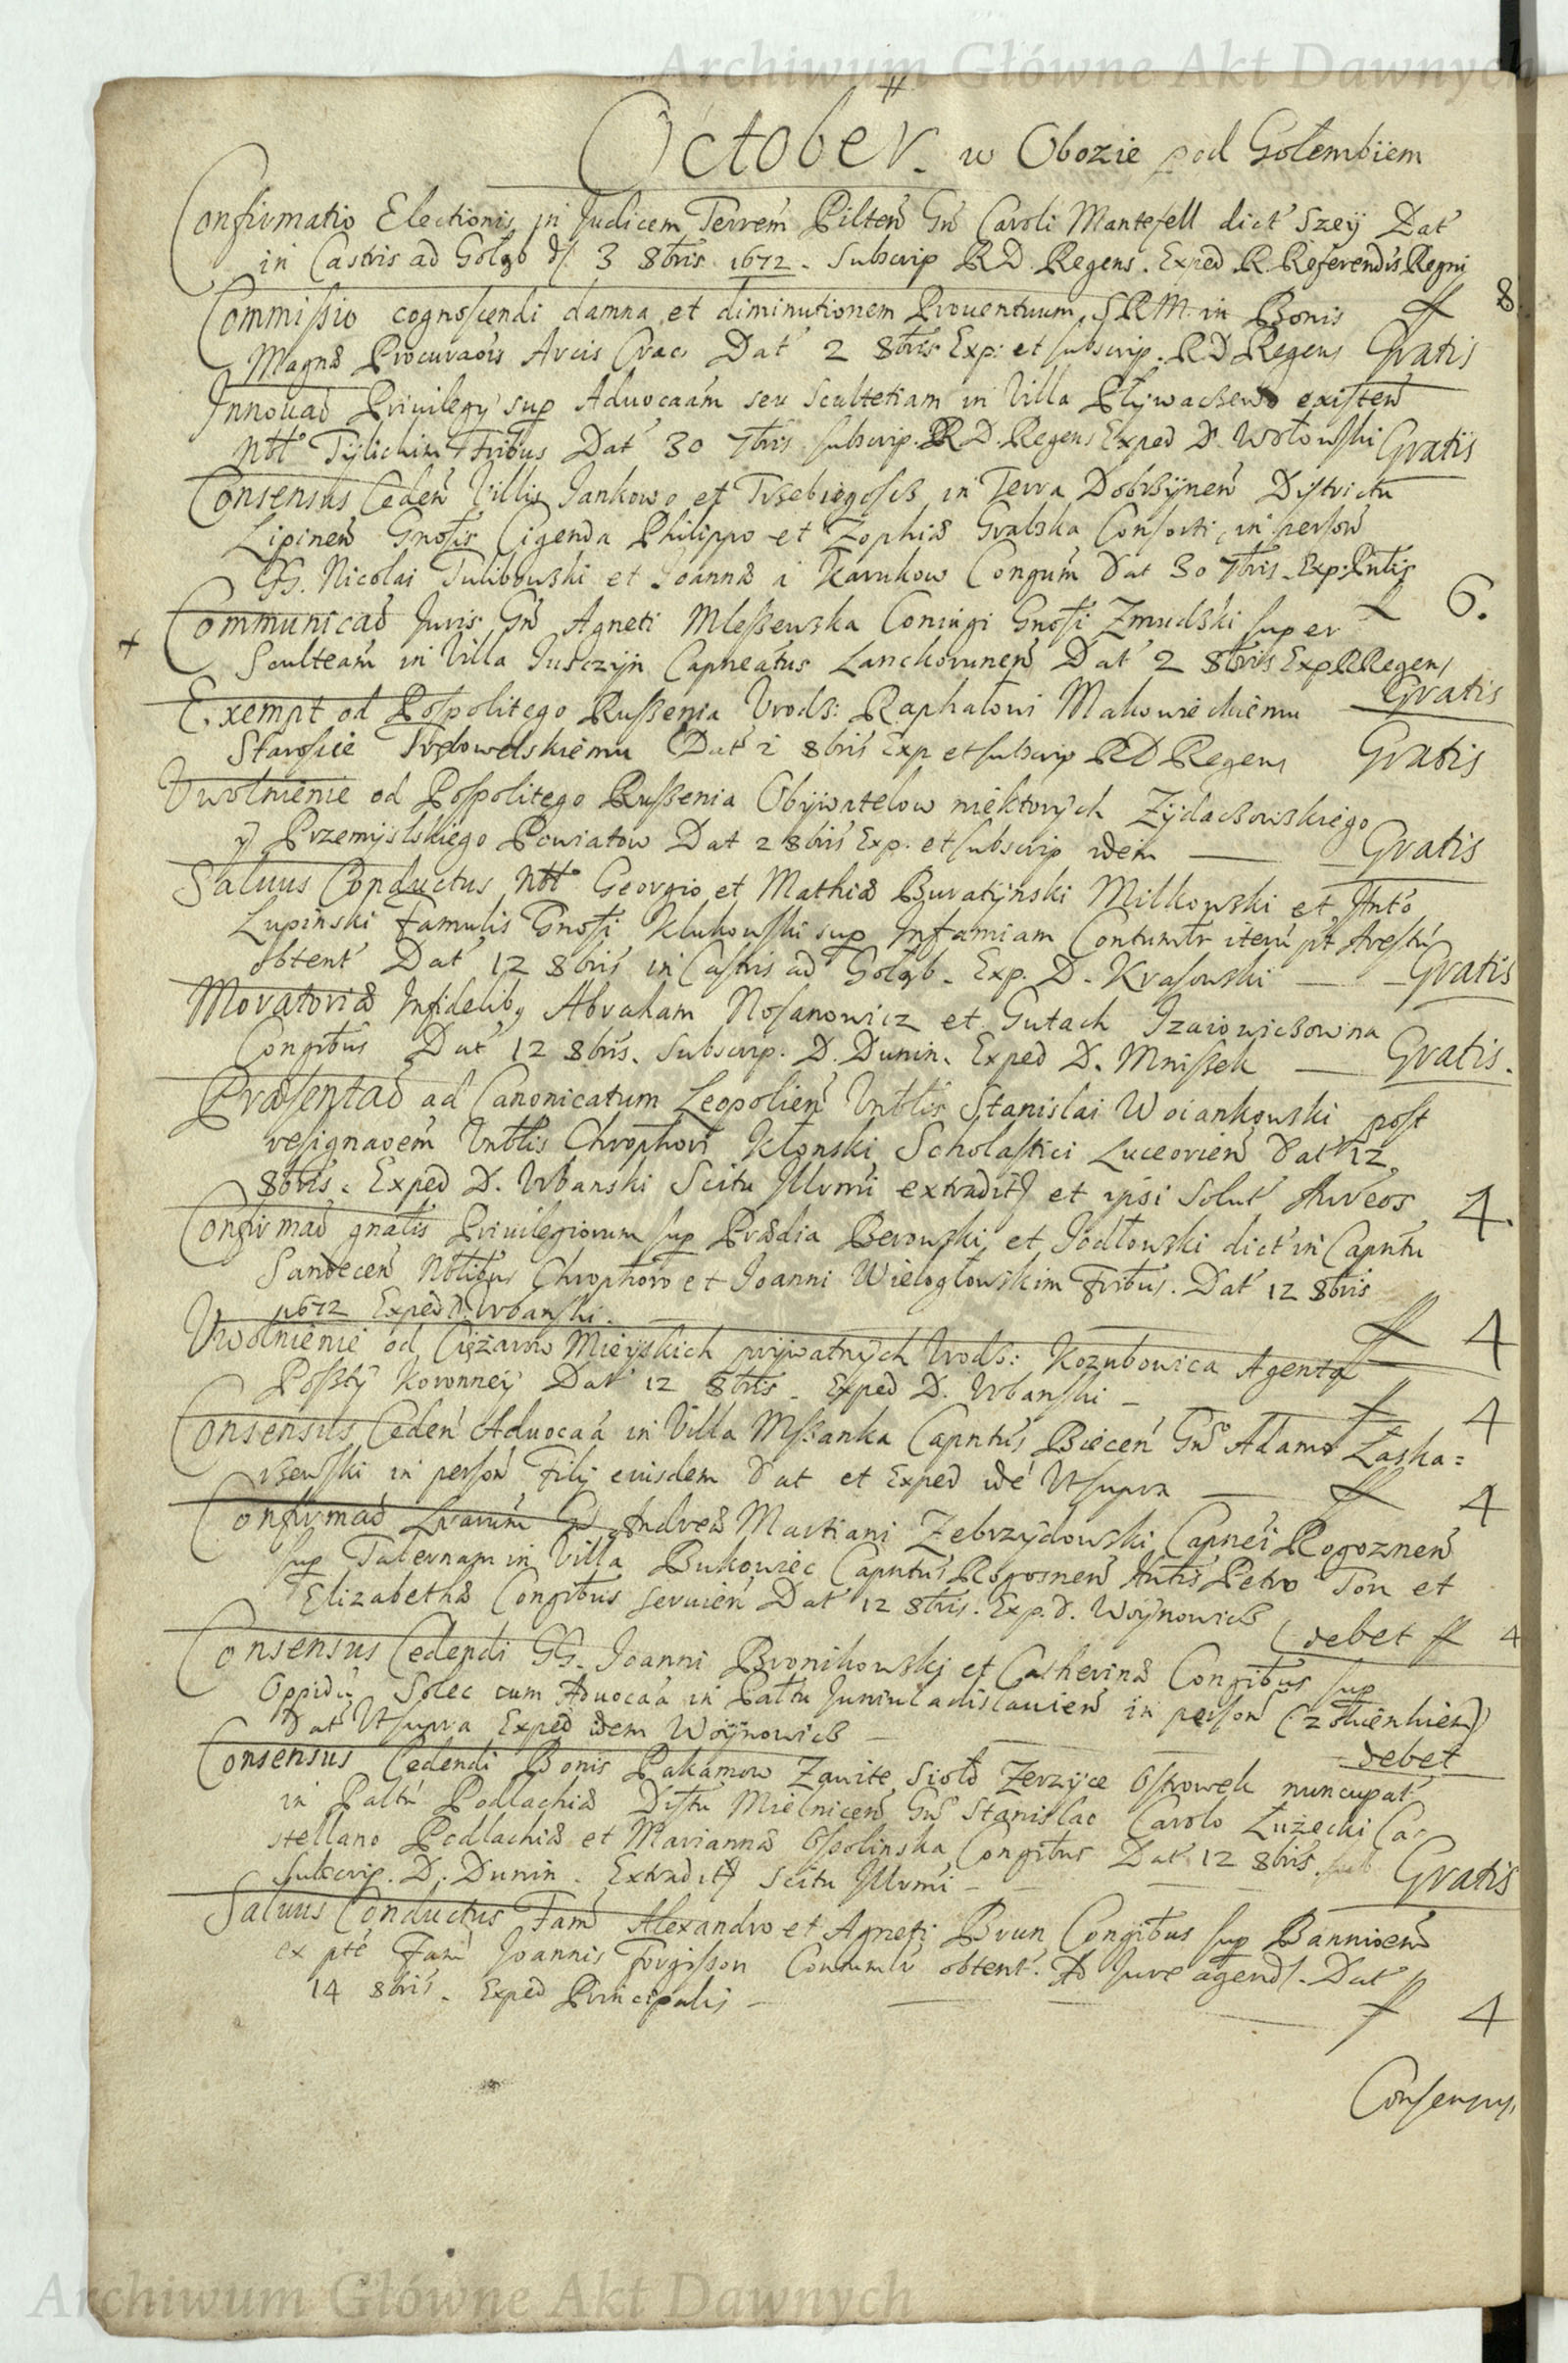 Archiwum Główne Akt Dawnych
October. w Obozie pod Gołembiem
Confirmatio Electionis in Judicem Terrem Pilten Gn Caroli Mantefell dict Szeÿ Dat
in Castris ad Gołąb d. 3 8bris 1672. Subscrip RD Regens. Exped R. Referendis Regni
ff 8
Commissio cognoscendi damna et diminutionem Prouentuum SRM. in Bonis
Magnæ Procuraōis Arcis Crac Dat 2 8bris Exp: et subscrip. RD Regens Gratis
Innouaō Priuilegÿ sup Aduocaām seu Scultetiam in Villa Płÿwaczewo existen
Nbt Tÿlickim Fribus Dat 30 7bris subscrip. RD. Regens Exped D. Wołowski Gratis
Consensus Ceden Villis Jankowo et Trzebiegoscz in Terra Dobrzÿnen Districtu
Lipinen Gnosis Cigenda Philippo et Zophiæ Grabska Consorti, in person
GG. Nicolai Tulibowski et Joannæ a Karnkow Congum Dat 30 7bris. Exp:
6.
+ Communicaō Juris Gn Agneti Mleszewska Coniugi Gnosi Zmudzki super
Sculteām in Villa Juszczÿn Capneatus Lanckorunen Dat 2 8bris Exp RRegens
Gratis
Exempt od Pospolitego Ruszenia Vrodz: Raphałowi Makowieckiemu
Staroscie Trębowelskiemu Dat 2 8bris Exp et subscrip RD Regens Gratis
Vwolnienie od Pospolitego Ruszenia Obÿwatelow niektorÿch Zÿdaczowskiego
ÿ Przemÿslskiego Powiatow Dat 2 8bris Exp. et subscrip idem Gratis
Saluus Conductus Nbt Georgio et Mathiæ Buratÿnski Milkowski et Anto
Lupinski Famulis Gnosi Klukowski sup Infamiam Contumtr item pt Arestu
obtent Dat 12 8bris in Castris ad Gołąb. Exp. D. Krasowski Gratis
Moratoriæ Infidelibq Abraham Nosanowicz et Gutach Izaiowiczowna
Congibus Dat 12 8bris. Subscrip. D. Dunin. Exped D. Mniszek Gratis.
Præsentaō ad Canonicatum Leopolien Vnblis Stanislai Woiankowski post
resignaoem Vnblis Chrophori Kłonski Scholastici Luceorien Dat 12
8bris. Exped D. Vrbanski Scitu Illrmi extradit et ipsi solut Aureos 4.
Confirmaō gnalis Priuilegiorum sup Prædia Berowski et Jodłowski dict in Capntu
Sandecen Nblibus Chrophoro et Joanni Wielogłowskim Fribus. Dat 12 8bris
1672 Exped D. Vrbanski. ff 4
Vwolnienie od Ciężarow Mieÿskich priwatnÿch Vrodz: Kozubowica Agenta
Poszty Koronneÿ Dat 12 8bris. Exped D. Vrbanski f 4
Consensus Ceden Aduocaā in Villa Mszanka Capntus Biecen Gno Adamo Łaska=
rzewski in person Filÿ eiusdem Dat et Exped idē Vtsupra ff 4
Confirmaō Lrarum Gn Andreæ Martiani Zebrzÿdowski Capnei Rogoznen
sup Tabernam in Villa Bukowiec Capntus Rogosnen Petro Ton et
Elizabethæ Congibus seruien Dat 12 8bris. Exp. D. Woÿnowicz
debet ff 4
Consensus Cedendi GG. Joanni Bronikowski et Catherinæ Congibus sup
Oppidū Solec cum Aduocaā in Pattu Juniuladislauien in person
Dat Vtsupra Exped idem Woÿnowicz
debet
Consensus Cedendi Bonis Pakamow Zawite Sioło Zerzÿce Ostrowek nuncupat
in Paltu Podlachiæ Distu Mielnicen Gno Stanislao Carolo Łużecki Ca=
stellano Podlachiæ et Mariannæ Ossolinska Congibus Dat 12 8bris
subscrip. D. Dunin. Extradit Scitu Illrmi Gratis
Saluus Conductus Fam Alexandro et Agneti Brun Congibus sup Bannioem
ex pte Fam Joannis Forgisson Contumtr obtent. Ad Jure agend. Dat
14 8bris. Exped Principalis f 4
Consensus
Archiwum Główne Akt Dawnych